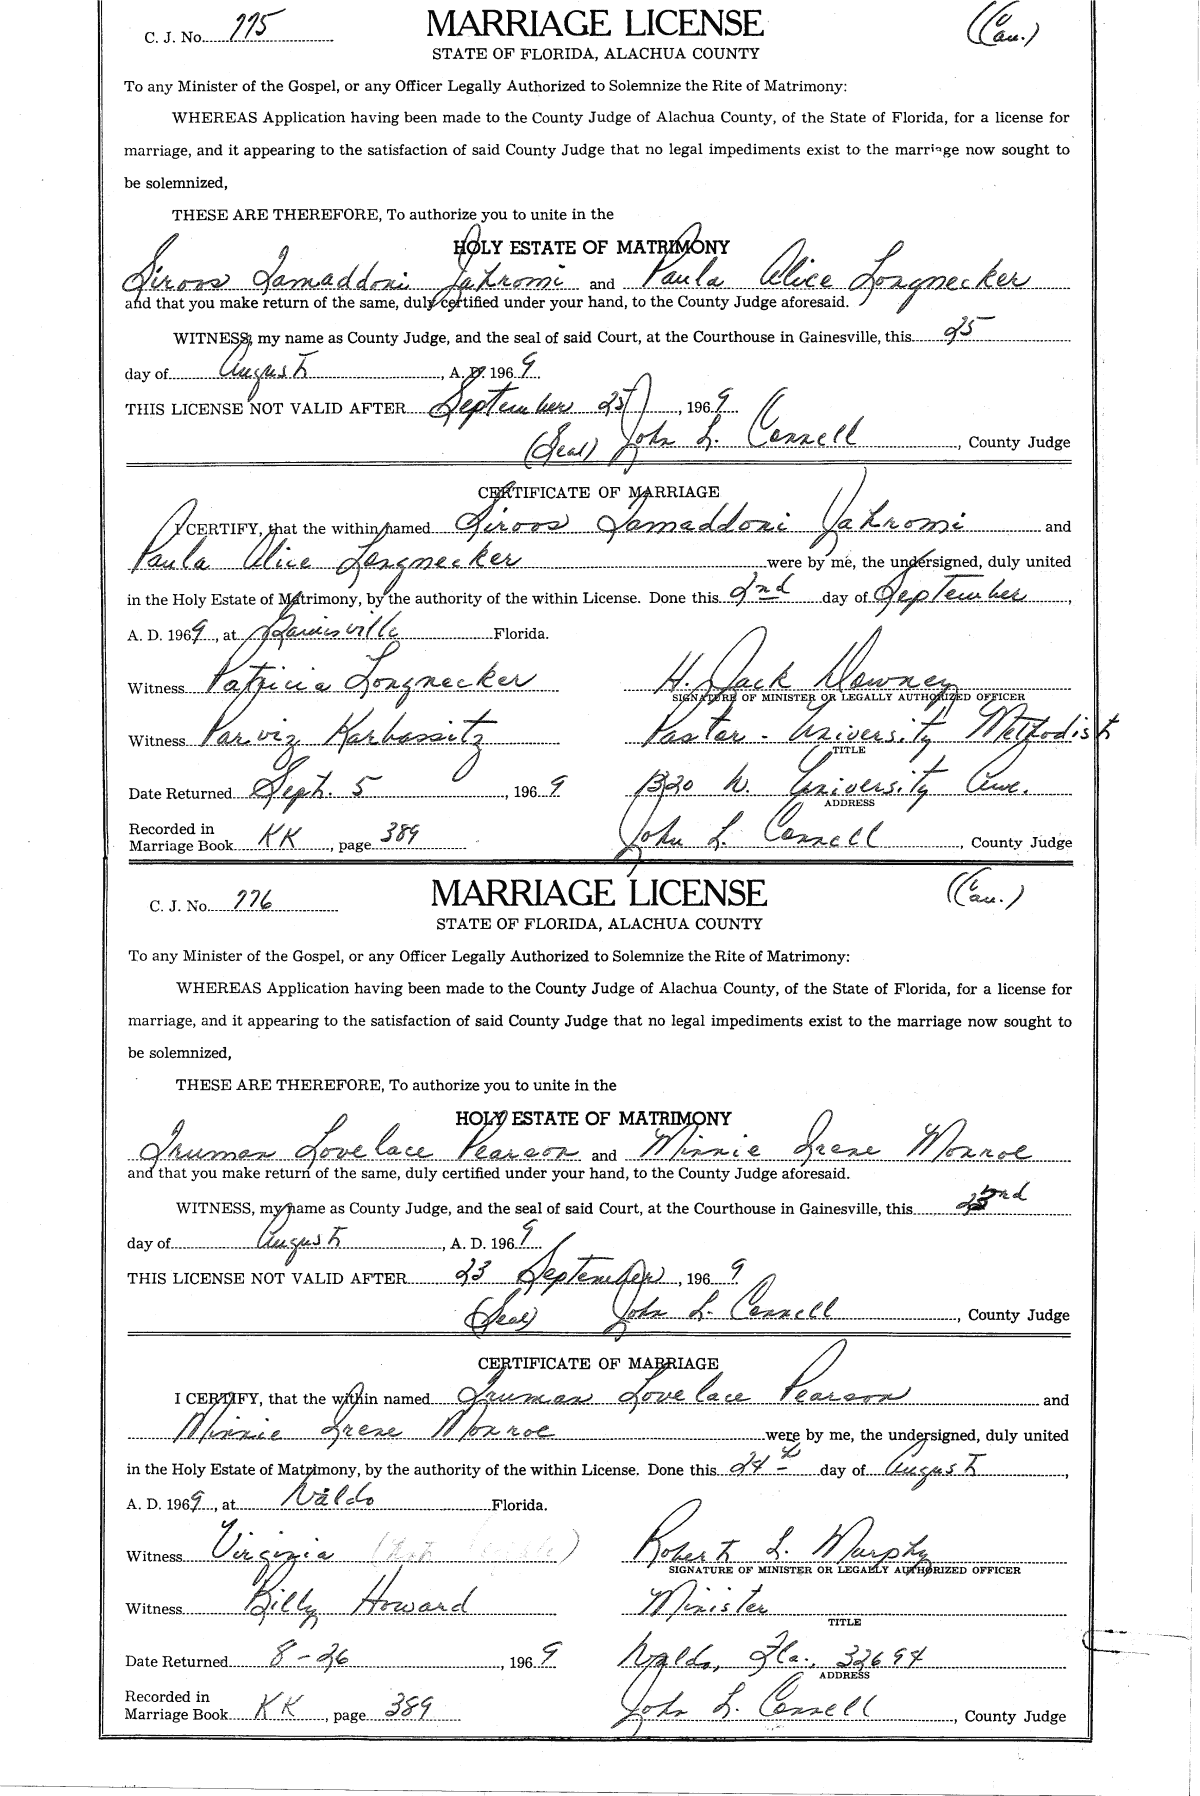 C. J. No. 775
MARRIAGE LICENSE
(Cau.)
STATE OF FLORIDA, ALACHUA COUNTY
To any Minister of the Gospel, or any Officer Legally Authorized to Solemnize the Rite of Matrimony:
WHEREAS Application having been made to the County Judge of Alachua County, of the State of Florida, for a license for
marriage, and it appearing to the satisfaction of said County Judge that no legal impediments exist to the marriage now sought to
be solemnized,
THESE ARE THEREFORE, To authorize you to unite in the
HOLY ESTATE OF MATRIMONY
Siroos Samaddoni Jahromi and Paula Alice Longnecker
and that you make return of the same, duly certified under your hand, to the County Judge aforesaid.
WITNESS, my name as County Judge, and the seal of said Court, at the Courthouse in Gainesville, this 25
day of August, A. D. 1969
THIS LICENSE NOT VALID AFTER September 25, 1969
(Seal) John L. Connell, County Judge
CERTIFICATE OF MARRIAGE
I CERTIFY, that the within named Siroos Samaddoni Jahromi and
Paula Alice Longnecker were by me, the undersigned, duly united
in the Holy Estate of Matrimony, by the authority of the within License. Done this 2nd day of September,
A. D. 1969, at Gainesville Florida.
Witness Patricia Longnecker H. Jack Downey
SIGNATURE OF MINISTER OR LEGALLY AUTHORIZED OFFICER
Witness Parviz Karbassitz Pastor - University Methodist
TITLE
Date Returned Sept. 5, 1969 1320 W. University Ave.
ADDRESS
Recorded in
Marriage Book KK, page 389 John L. Connell, County Judge
C. J. No. 776
MARRIAGE LICENSE
(Cau.)
STATE OF FLORIDA, ALACHUA COUNTY
To any Minister of the Gospel, or any Officer Legally Authorized to Solemnize the Rite of Matrimony:
WHEREAS Application having been made to the County Judge of Alachua County, of the State of Florida, for a license for
marriage, and it appearing to the satisfaction of said County Judge that no legal impediments exist to the marriage now sought to
be solemnized,
THESE ARE THEREFORE, To authorize you to unite in the
HOLY ESTATE OF MATRIMONY
Truman Lovelace Pearson and Minnie Irene Monroe
and that you make return of the same, duly certified under your hand, to the County Judge aforesaid.
WITNESS, my name as County Judge, and the seal of said Court, at the Courthouse in Gainesville, this
day of August, A. D. 1969
THIS LICENSE NOT VALID AFTER 23 September, 1969
(Seal) John L. Connell, County Judge
CERTIFICATE OF MARRIAGE
I CERTIFY, that the within named Truman Lovelace Pearson and
Minnie Irene Monroe were by me, the undersigned, duly united
in the Holy Estate of Matrimony, by the authority of the within License. Done this 24th day of August,
A. D. 1969, at Waldo Florida.
Witness Virginia Robert L. Murphy
SIGNATURE OF MINISTER OR LEGALLY AUTHORIZED OFFICER
Witness Billy Howard Minister
TITLE
Date Returned 8-26, 1969 Waldo, Fla., 32694
ADDRESS
Recorded in
Marriage Book KK, page 389 John L. Connell, County Judge